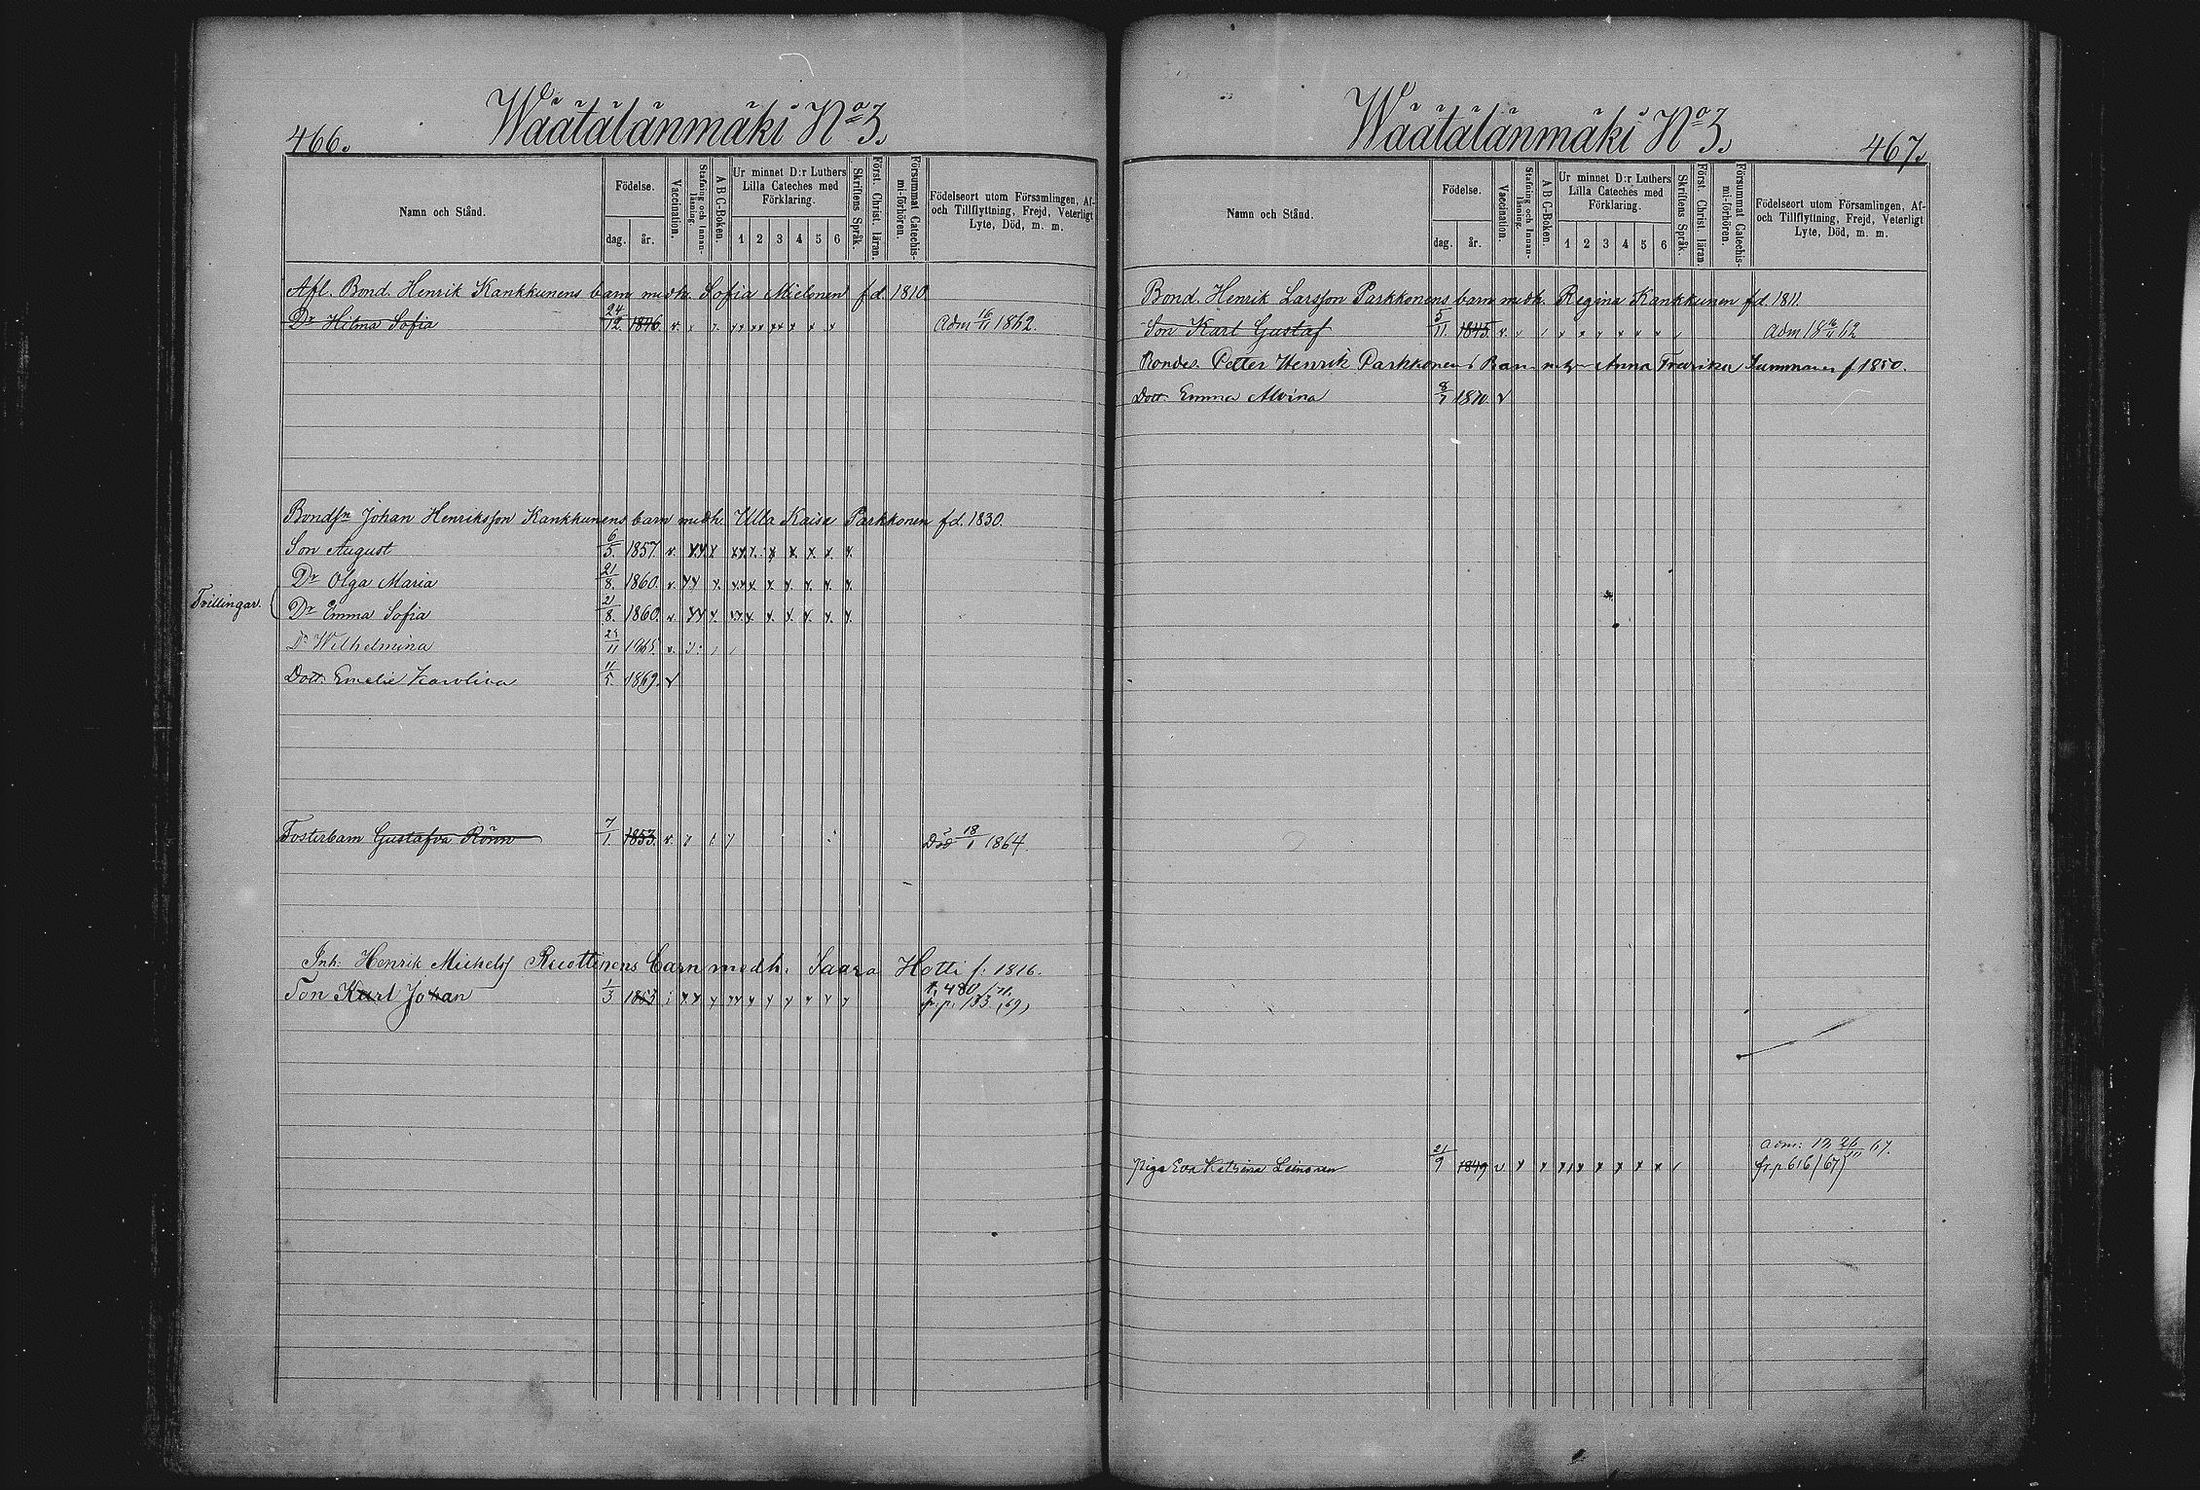 466.
Wäätälänmäki No 3.
Namn och Stånd.
Födelse.
dag.
år.
Vaccination.
Stafning och Innan-läsning.
A B C-Boken.
Ur minnet D:r Luthers
Lilla Cateches med
Förklaring.
1 2 3 4 5 6
Skriftens Språk.
Först. Christ. läran.
Försummat Catechis-mi-förhören.
Födelseort utom Församlingen, Af-
och Tillflyttning, Frejd, Veterligt
Lyte, Död, m. m.
Afl. Bond. Henrik Kankkunens barn medh. Sofia Mielonen fd. 1810.
Dr Hilma Sofia 24/12 1846. v. Adm 16/11 1862.
Bondsn Johan Henriksson Kankkunens barn medh. Ulla Kaisa Parkkonen fd. 1830.
Son August 6/5. 1857. v.
Tvillingar.
Dr Olga Maria 21/8. 1860. v.
Dr Emma Sofia 21/8. 1860. v.
Dr Wilhelmina 1865. v.
Dott. Emelie Karolina 11/5. 1869. v
Fosterbarn Gustafva Rönn 7/1. 1853. v. Död 18/1 1864.
Inh: Henrik Michelss Ruottinens barn medh. Saara Hotti f: 1816.
Son Karl Johan 1/3 1853 p. 480/71.
fr. p. 133 (69)
467.
Wäätälänmäki No 3.
Namn och Stånd.
Födelse.
dag.
år.
Vaccination.
Stafning och Innan-läsning.
A B C-Boken.
Ur minnet D:r Luthers
Lilla Cateches med
Förklaring.
1 2 3 4 5 6
Skriftens Språk.
Först. Christ. läran.
Försummat Catechis-mi-förhören.
Födelseort utom Församlingen, Af-
och Tillflyttning, Frejd, Veterligt
Lyte, Död, m. m.
Bond. Henrik Larsson Parkkonens barn medh. Regina Kankkunen fd. 1811.
Son Karl Gustaf 5/11. 1845. v. Adm 18 16/11 62
Bondes. Petter Henrik Parkkonens Barn Anna Fredrika f 1850.
Dott. Emma Alvina 8/7 1870. v
adm: 26/11 67.
Piga Eva Katrina Leinonen 21/9 1849 v fr. p 616 (67)